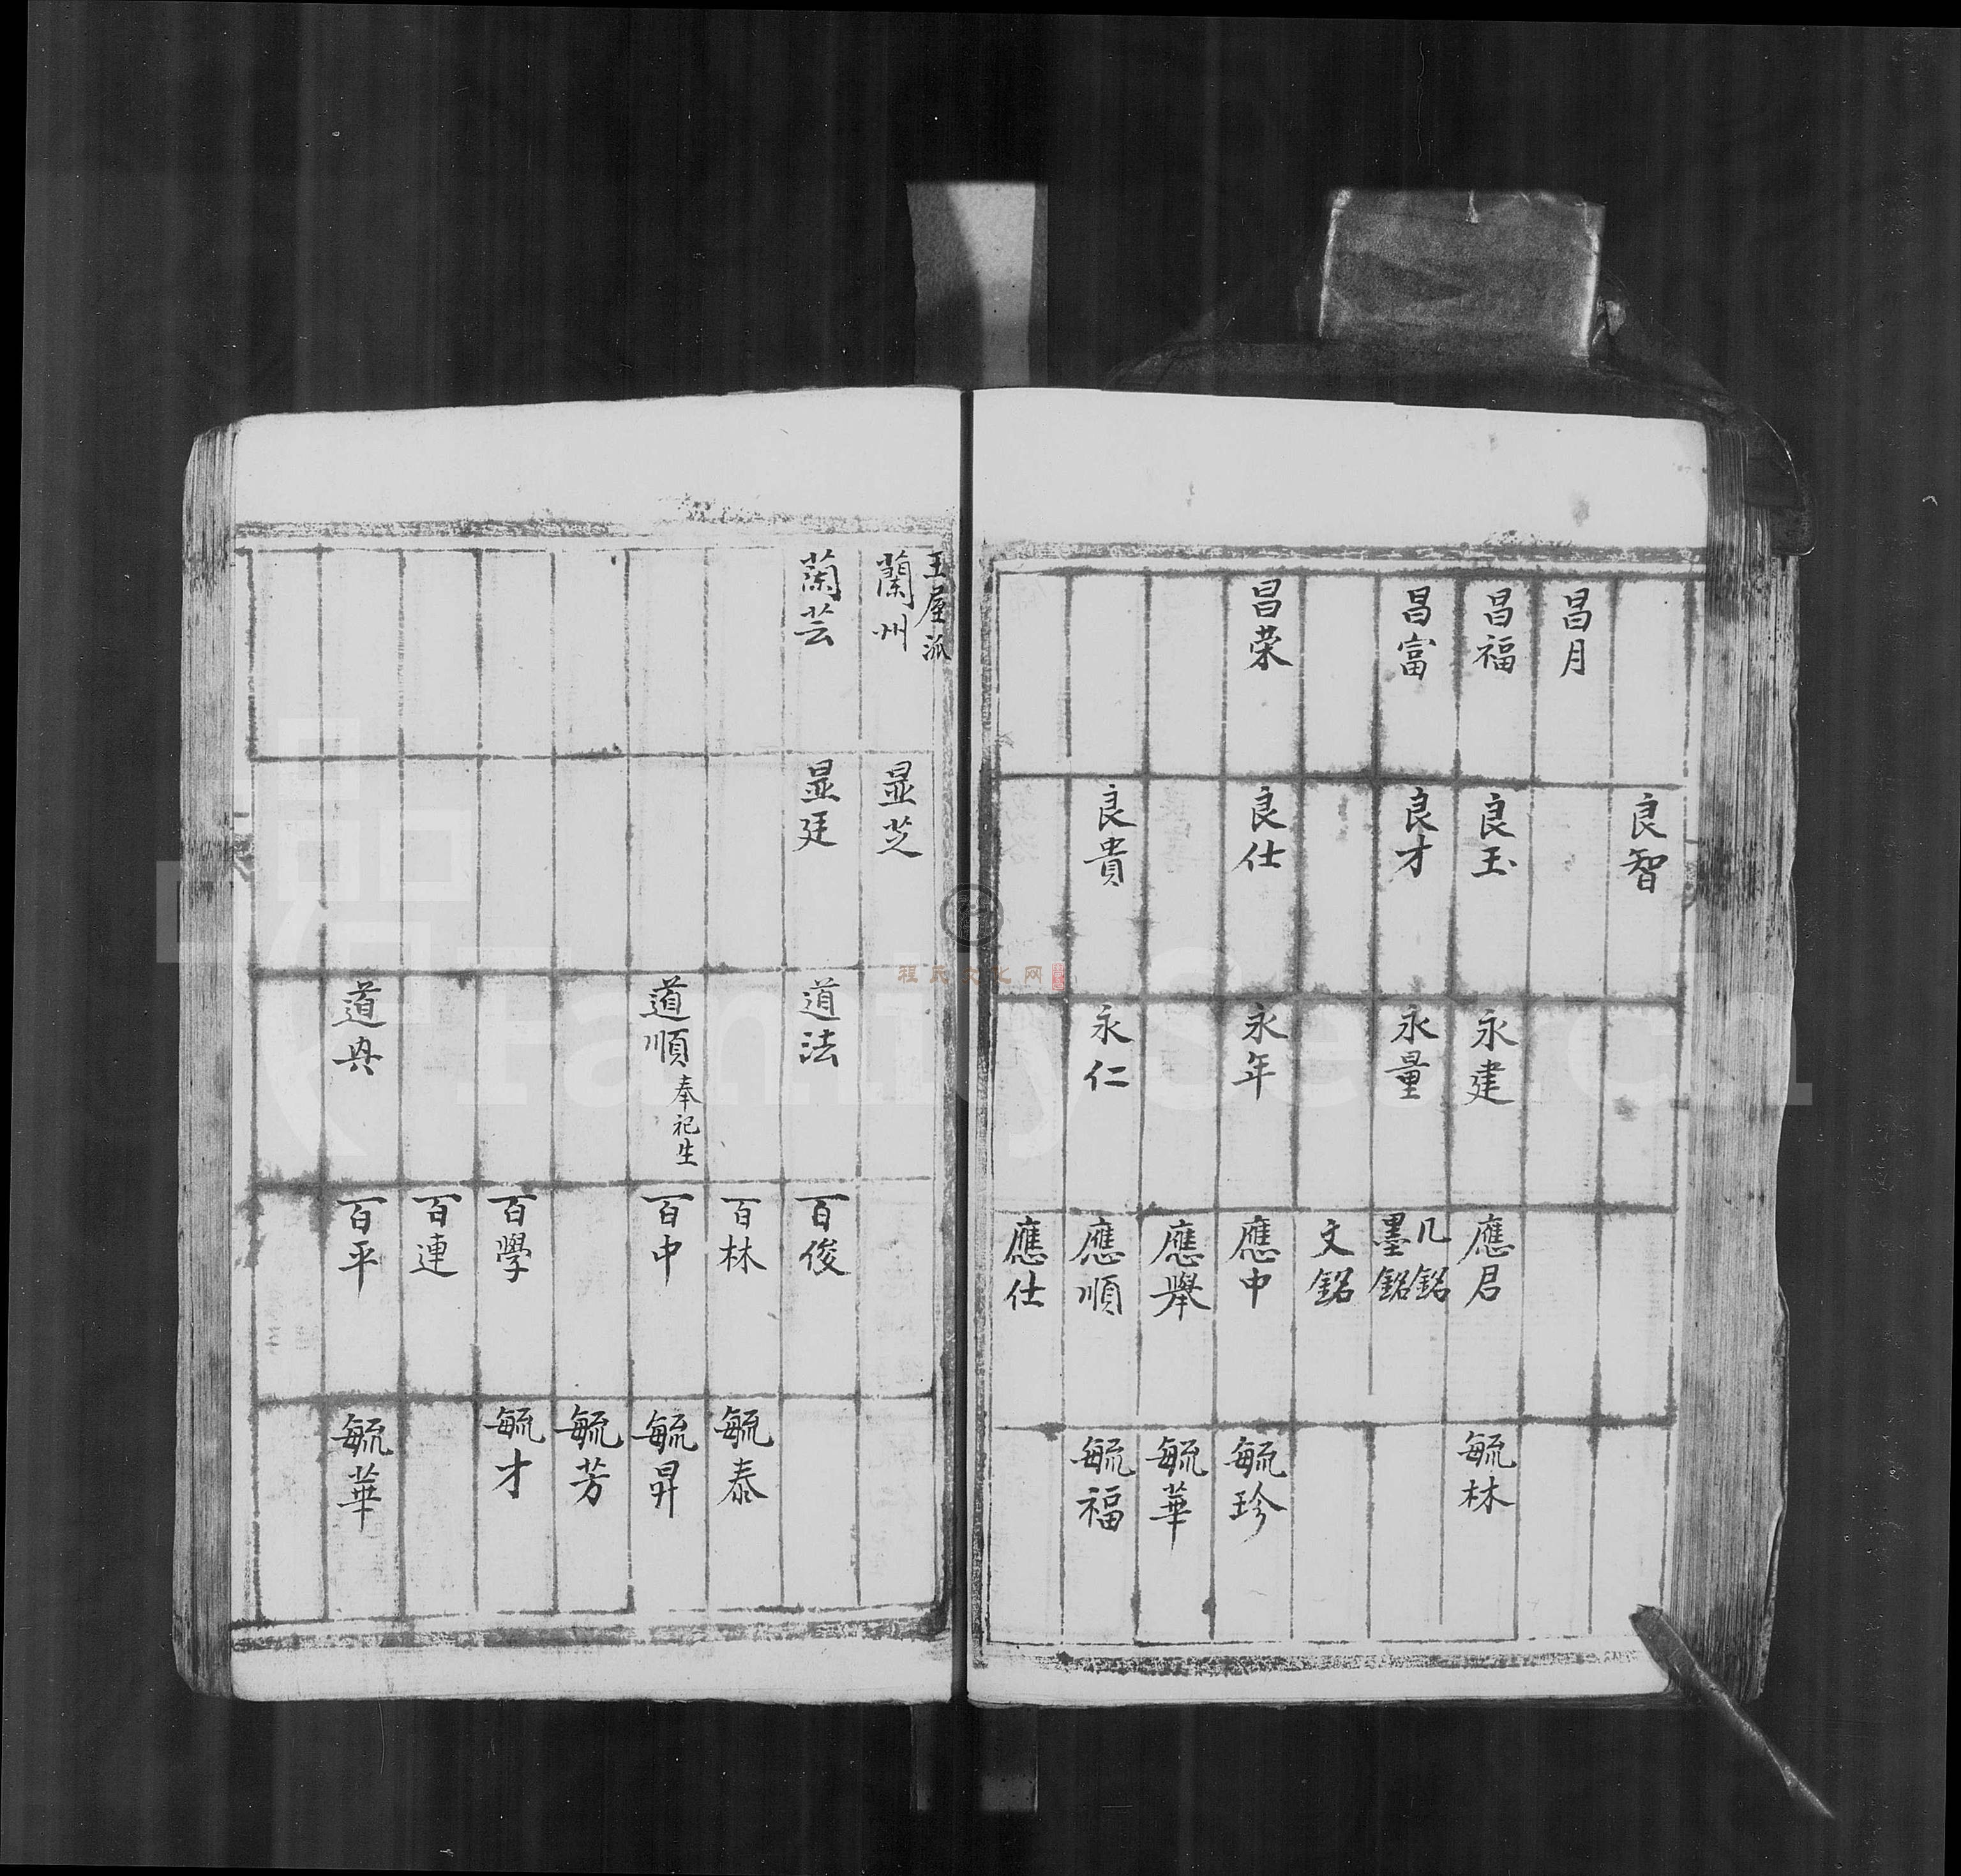 昌月
昌福
昌富
昌荣
良智
良玉
良才
良仕
良貴
永建
永量
永年
永仁
應君
几銘
墨銘
文銘
應中
應舉
應順
應仕
毓林
毓珍
毓華
毓福
王屋派
蘭州
蘭芸
显芝
显廷
道法
道順 奉祀生
道典
百俊
百林
百中
百學
百連
百平
毓泰
毓昇
毓芳
毓才
毓華
程氏文化网
FamilySearch